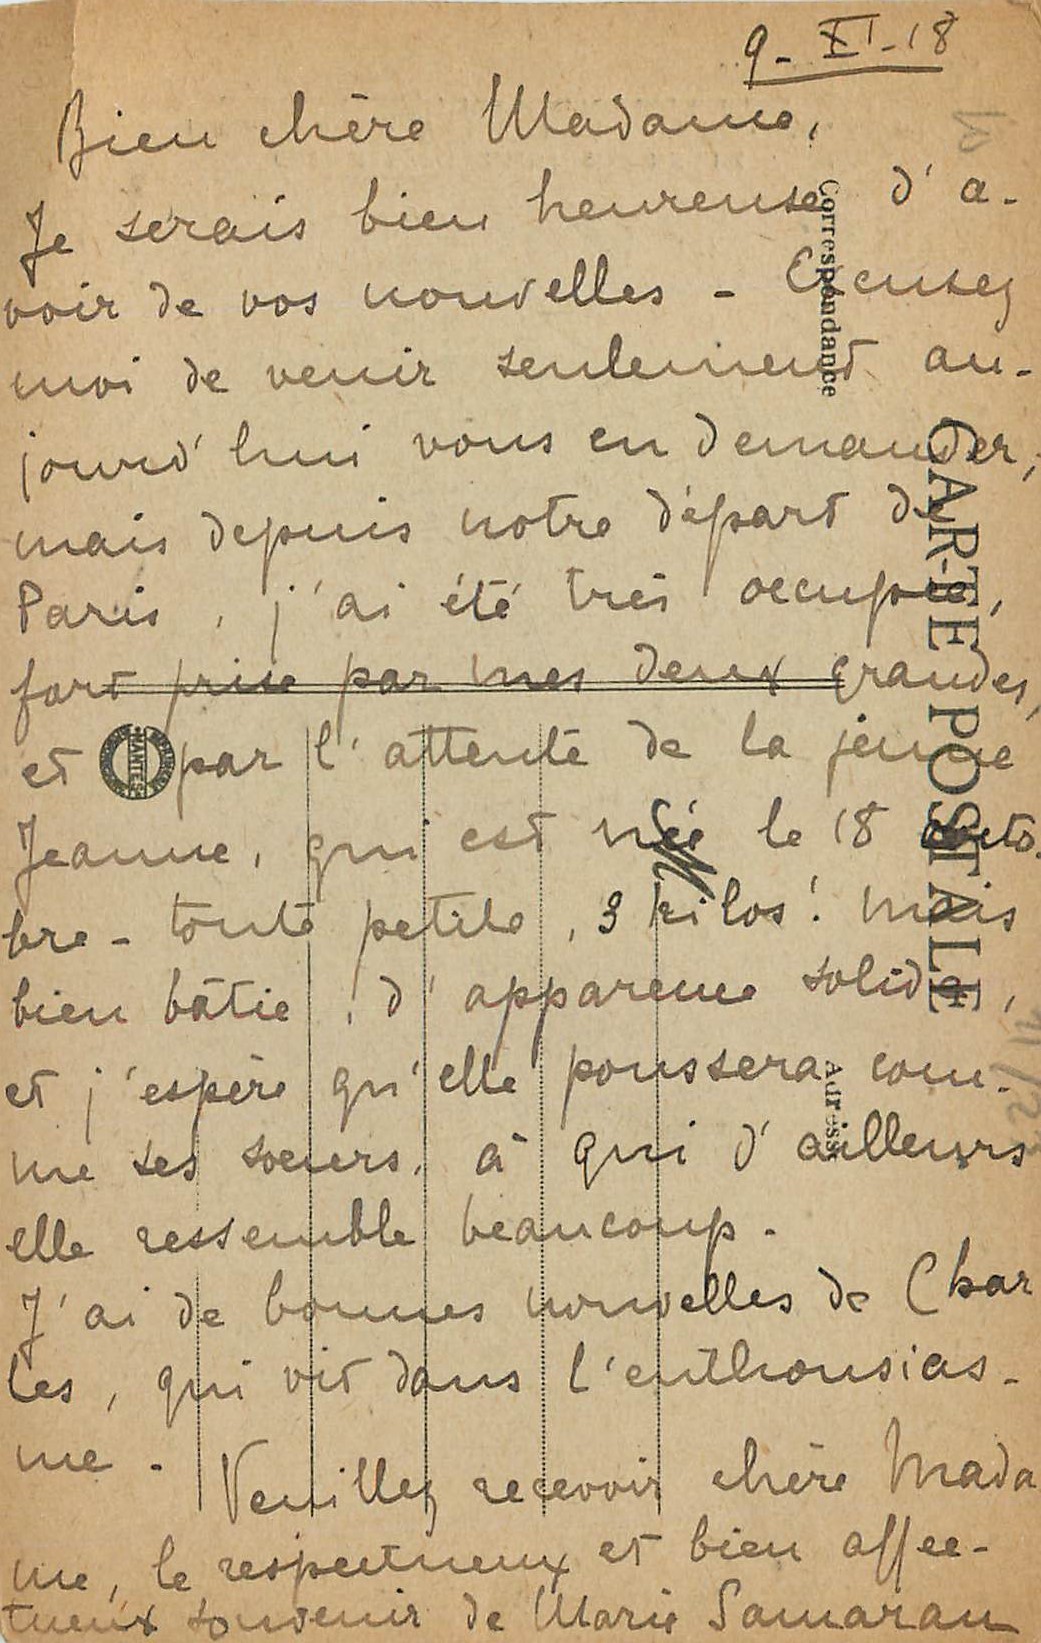 9-XI-18
Bien chère Madame,
Je serais bien heureuse d'a-
voir de vos nouvelles - Excusez
moi de venir seulement au-
jourd'hui vous en demander,
mais depuis notre départ de
Paris, j'ai été très occupée,
fort prise par mes deux grandes,
et par l'attente de la jeune
Jeanne, qui est née le 18 octo-
bre - toute petite, 3 kilos! mais
bien bâtie, d'apparence solide,
et j'espère qu'elle poussera com-
me ses soeurs, à qui d'ailleurs
elle ressemble beaucoup.
J'ai de bonnes nouvelles de Char
les, qui vit dans l'enthousias-
me. Veuillez recevoir chère Mada
me, le respectueux et bien affec-
tueux souvenir de Marie Samaran
Correspondance
CARTE POSTALE
Adresse
NANTES